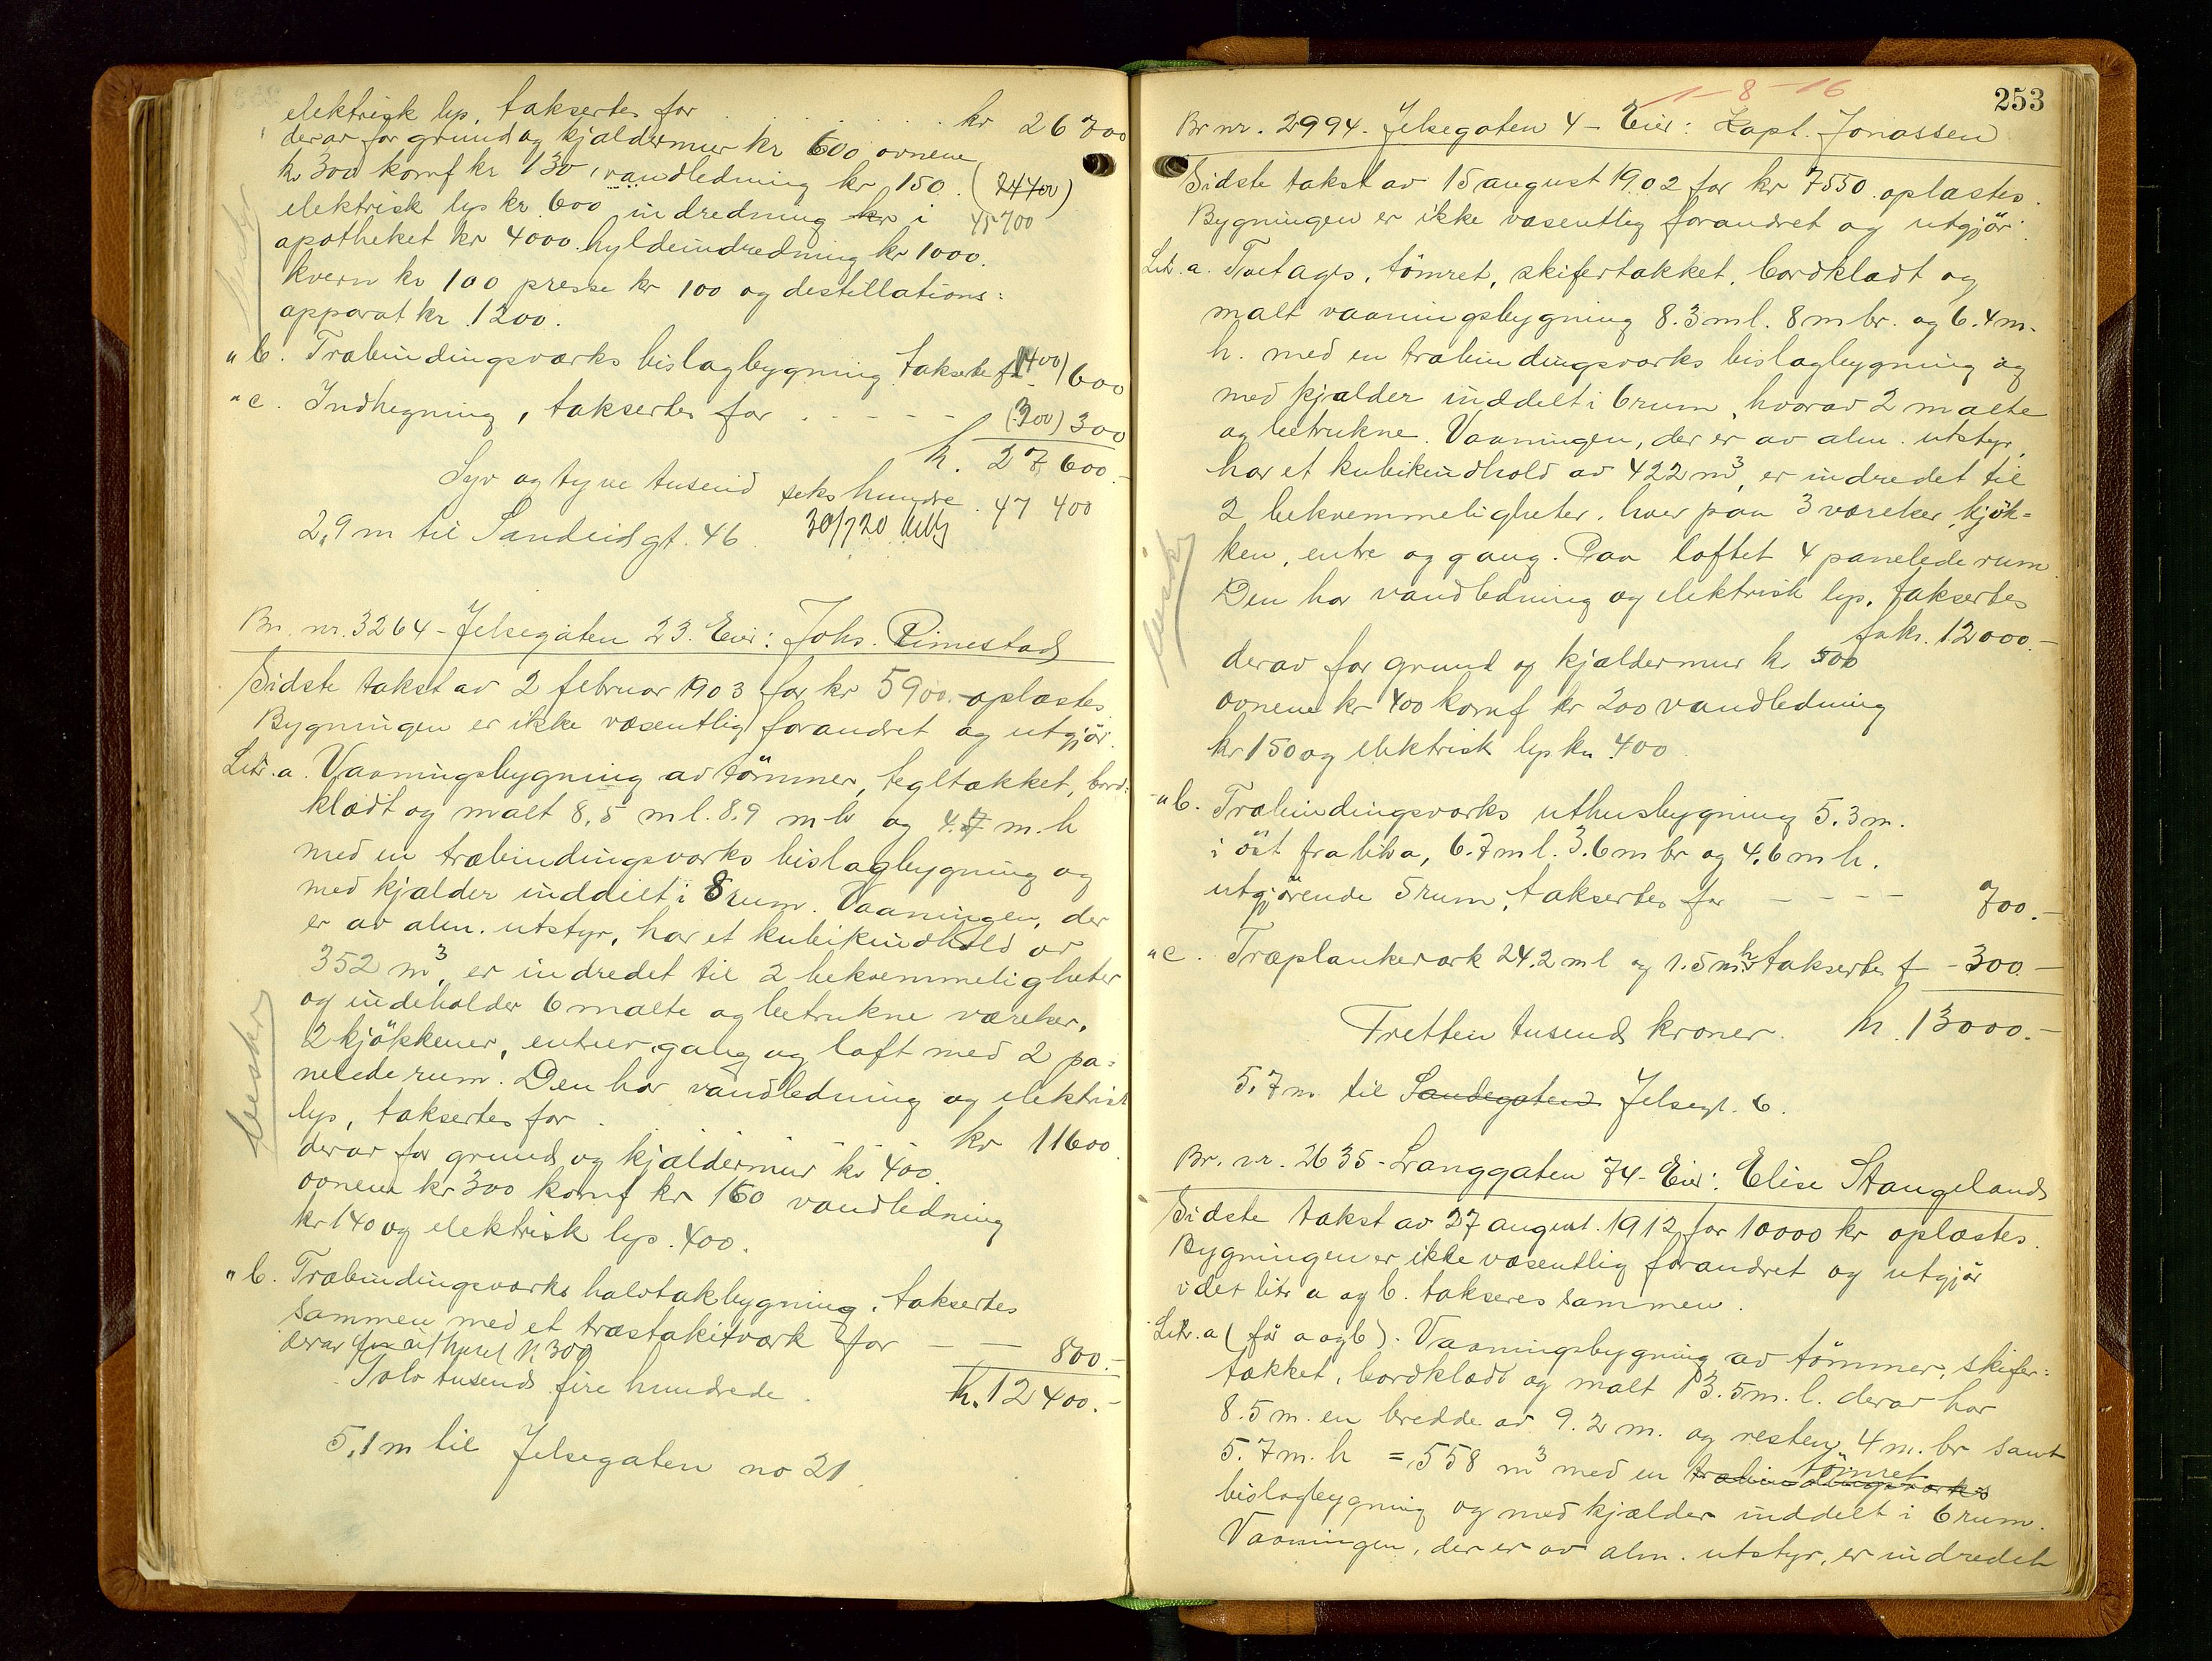 elektrisk lys, taksertes for . . . . . . . kr 26700
derav for grund og kjældermur kr 600 ovnene
kr 300 komf kr 130, vandledning kr 150. (24400)
elektrisk lys kr 600 indredning kr i 45700
apotheket kr 4000. hyldeindredning kr 1000.
kvern kr 100 presse kr 100 og destillations=
apparat kr 1200.
" b. Træbindingsværks bislagbygning taksertes f (1400) 600
" c. Indhegning, taksertes for . - - - - - (300) 300
kr. 27600.-
Syv og tyve tusend seks hundre . 47 400
2,9 m til Sandeidgt. 46. 30/7 20
Br. nr. 3264 - Jelsegaten 23. Eier: Johs. Rimestad
Sidste takst av 2 februar 1903 for kr 5900.- oplæstes
Bygningen er ikke væsentlig forandret og utgjör.
Litr. a. Vaaningsbygning av tömmer, tegltækket, bord=
klædt og malt 8,5 m l. 8,9 m br og 4.7 m. h
med en træbindingsværks bislagbygning og
med kjælder inddelt i 8 rum. Vaaningen, der
er av alm. utstyr, har et kubikindhold av
352 m³, er indredet til 2 bekvemmeligheter
og indeholder 6 malte og betrukne værelser,
2 kjökkener, entreer gang og loft med 2 pa=
nelede rum. Den har vandledning og elektrisk
lys, taksertes for . . - - - kr 11600.
derav for grund og kjældermur kr 400.
ovnene kr 300 komf kr 160 vandledning
kr 140 og elektrisk lys. 400.
" b. Træbindingsværks halvtakbygning, taksertes
sammen med et træstakitværk for - - 800.-
derav for uthuset kr 300
Tolv tusend fire hundrede. kr. 12400.-
5,1 m til Jelsegaten no 21
besikt
1-8-16
253
Br nr. 2994. Jelsegaten 4 - Eier: Kapt. Jonassen
Sidste takst av 15 august 1902 for kr 7550 oplæstes.
Bygningen er ikke væsentlig forandret og utgjör.
Litr. a. Toetages, tömret, skifertækket, bordklædt og
malt vaaningsbygning 8.3 m l. 8 m br. og 6.4 m.
h. med en træbindingsværks bislagbygning og
med kjælder inddelt i 6 rum, hvorav 2 malte
og betrukne. Vaaningen, der er av alm. utstyr,
har et kubikindhold av 422 m³, er indredet til
2 bekvemmeligheter, hver paa 3 værelser, kjök=
ken, entre og gang. Paa loftet 4 panelede rum.
Den har vandledning og elektrisk lys, taksertes
for kr. 12000.-
derav for grund og kjældermur kr 500
ovnene kr 400 komf kr 200 vandledning
kr 150 og elektrisk lys kr 400.
" b. Træbindingsværks uthusbygning 5.3 m.
i öst fra litra a, 6.7 m l. 3.6 m br og 4.6 m h.
utgjörende 5 rum, taksertes for - - - - 700.-
" c. Træplankeværk 24.2 m l og 1.5 m h taksertes f - 300.-
Tretten tusend kroner. kr. 13000.-
5.7 m til Sandegaten Jelsegt. 6.
Br. nr. 2635 - Langgaten 74 - Eier: Elise Stangeland
Sidste takst av 27 august 1912 for 10000 kr oplæstes.
Bygningen er ikke væsentlig forandret og utgjör
idet litr a og b. takseres sammen.
Litr. a (för a og b). Vaaningsbygning av tömmer, skifer=
tækket, bordklædt og malt 13.5 m. l. derav har
8.5 m. en bredde av 9.2 m. og resten 4 m. br samt
5.7 m. h = 558 m³ med en træbindingsværks tömret
bislagbygning og med kjælder inddelt i 6 rum.
Vaaningen, der er av alm. utstyr, er indredet